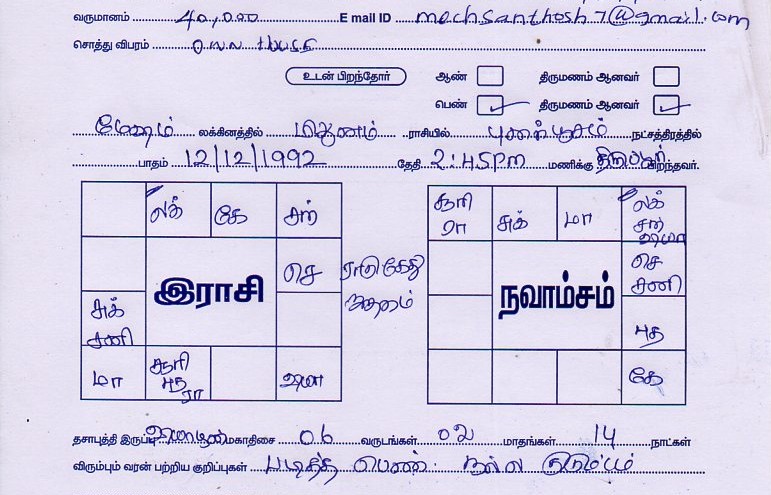 வருமானம் 40,000 E mail ID mechsanthosh7@gmail.com
சொத்து விபரம் own House
உடன் பிறந்தோர் ஆண் திருமணம் ஆனவர்
பெண் ✓ திருமணம் ஆனவர் ✓
மேஷம் லக்கினத்தில் மிதுனம் ராசியில் புனர்பூசம் நட்சத்திரத்தில்
பாதம் 12/12/1992 தேதி 2:45PM மணிக்கு பிறந்தவர்.
லக் கே சந்
செ
இராசி
சுக் சனி
மா சூரி புத ரா
ராகு கேது
சூரி ரா சுக் மா லக் சந்
செ சனி
நவாம்சம்
புத
கே
தசாபுத்தி இருப்பு மகாதிசை 06 வருடங்கள் 02 மாதங்கள் 14 நாட்கள்
விரும்பும் வரன் பற்றிய குறிப்புகள் படித்த பெண் நல்ல குடும்பம்